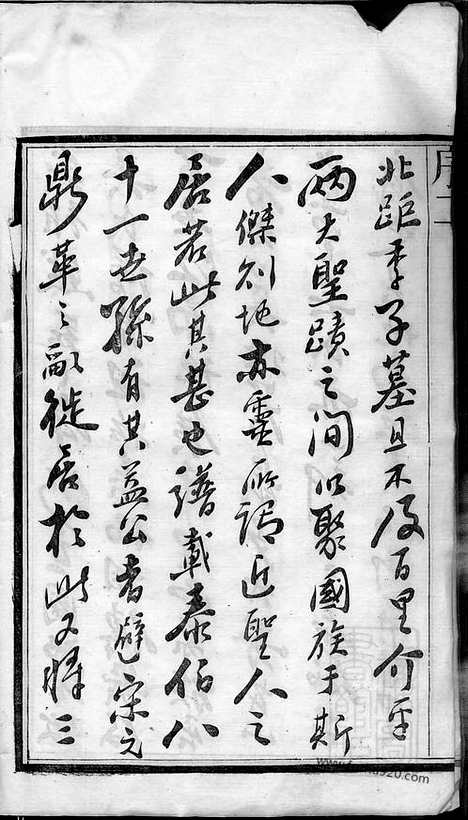 北距季子墓且不及百里介乎
兩大聖蹟之間以聚國族于斯
人傑則地亦靈所謂近聖人之
居若此其甚也譜載泰伯八
十一世孫有其益公者避宋元
鼎革之亂徙居於此又將三
序二